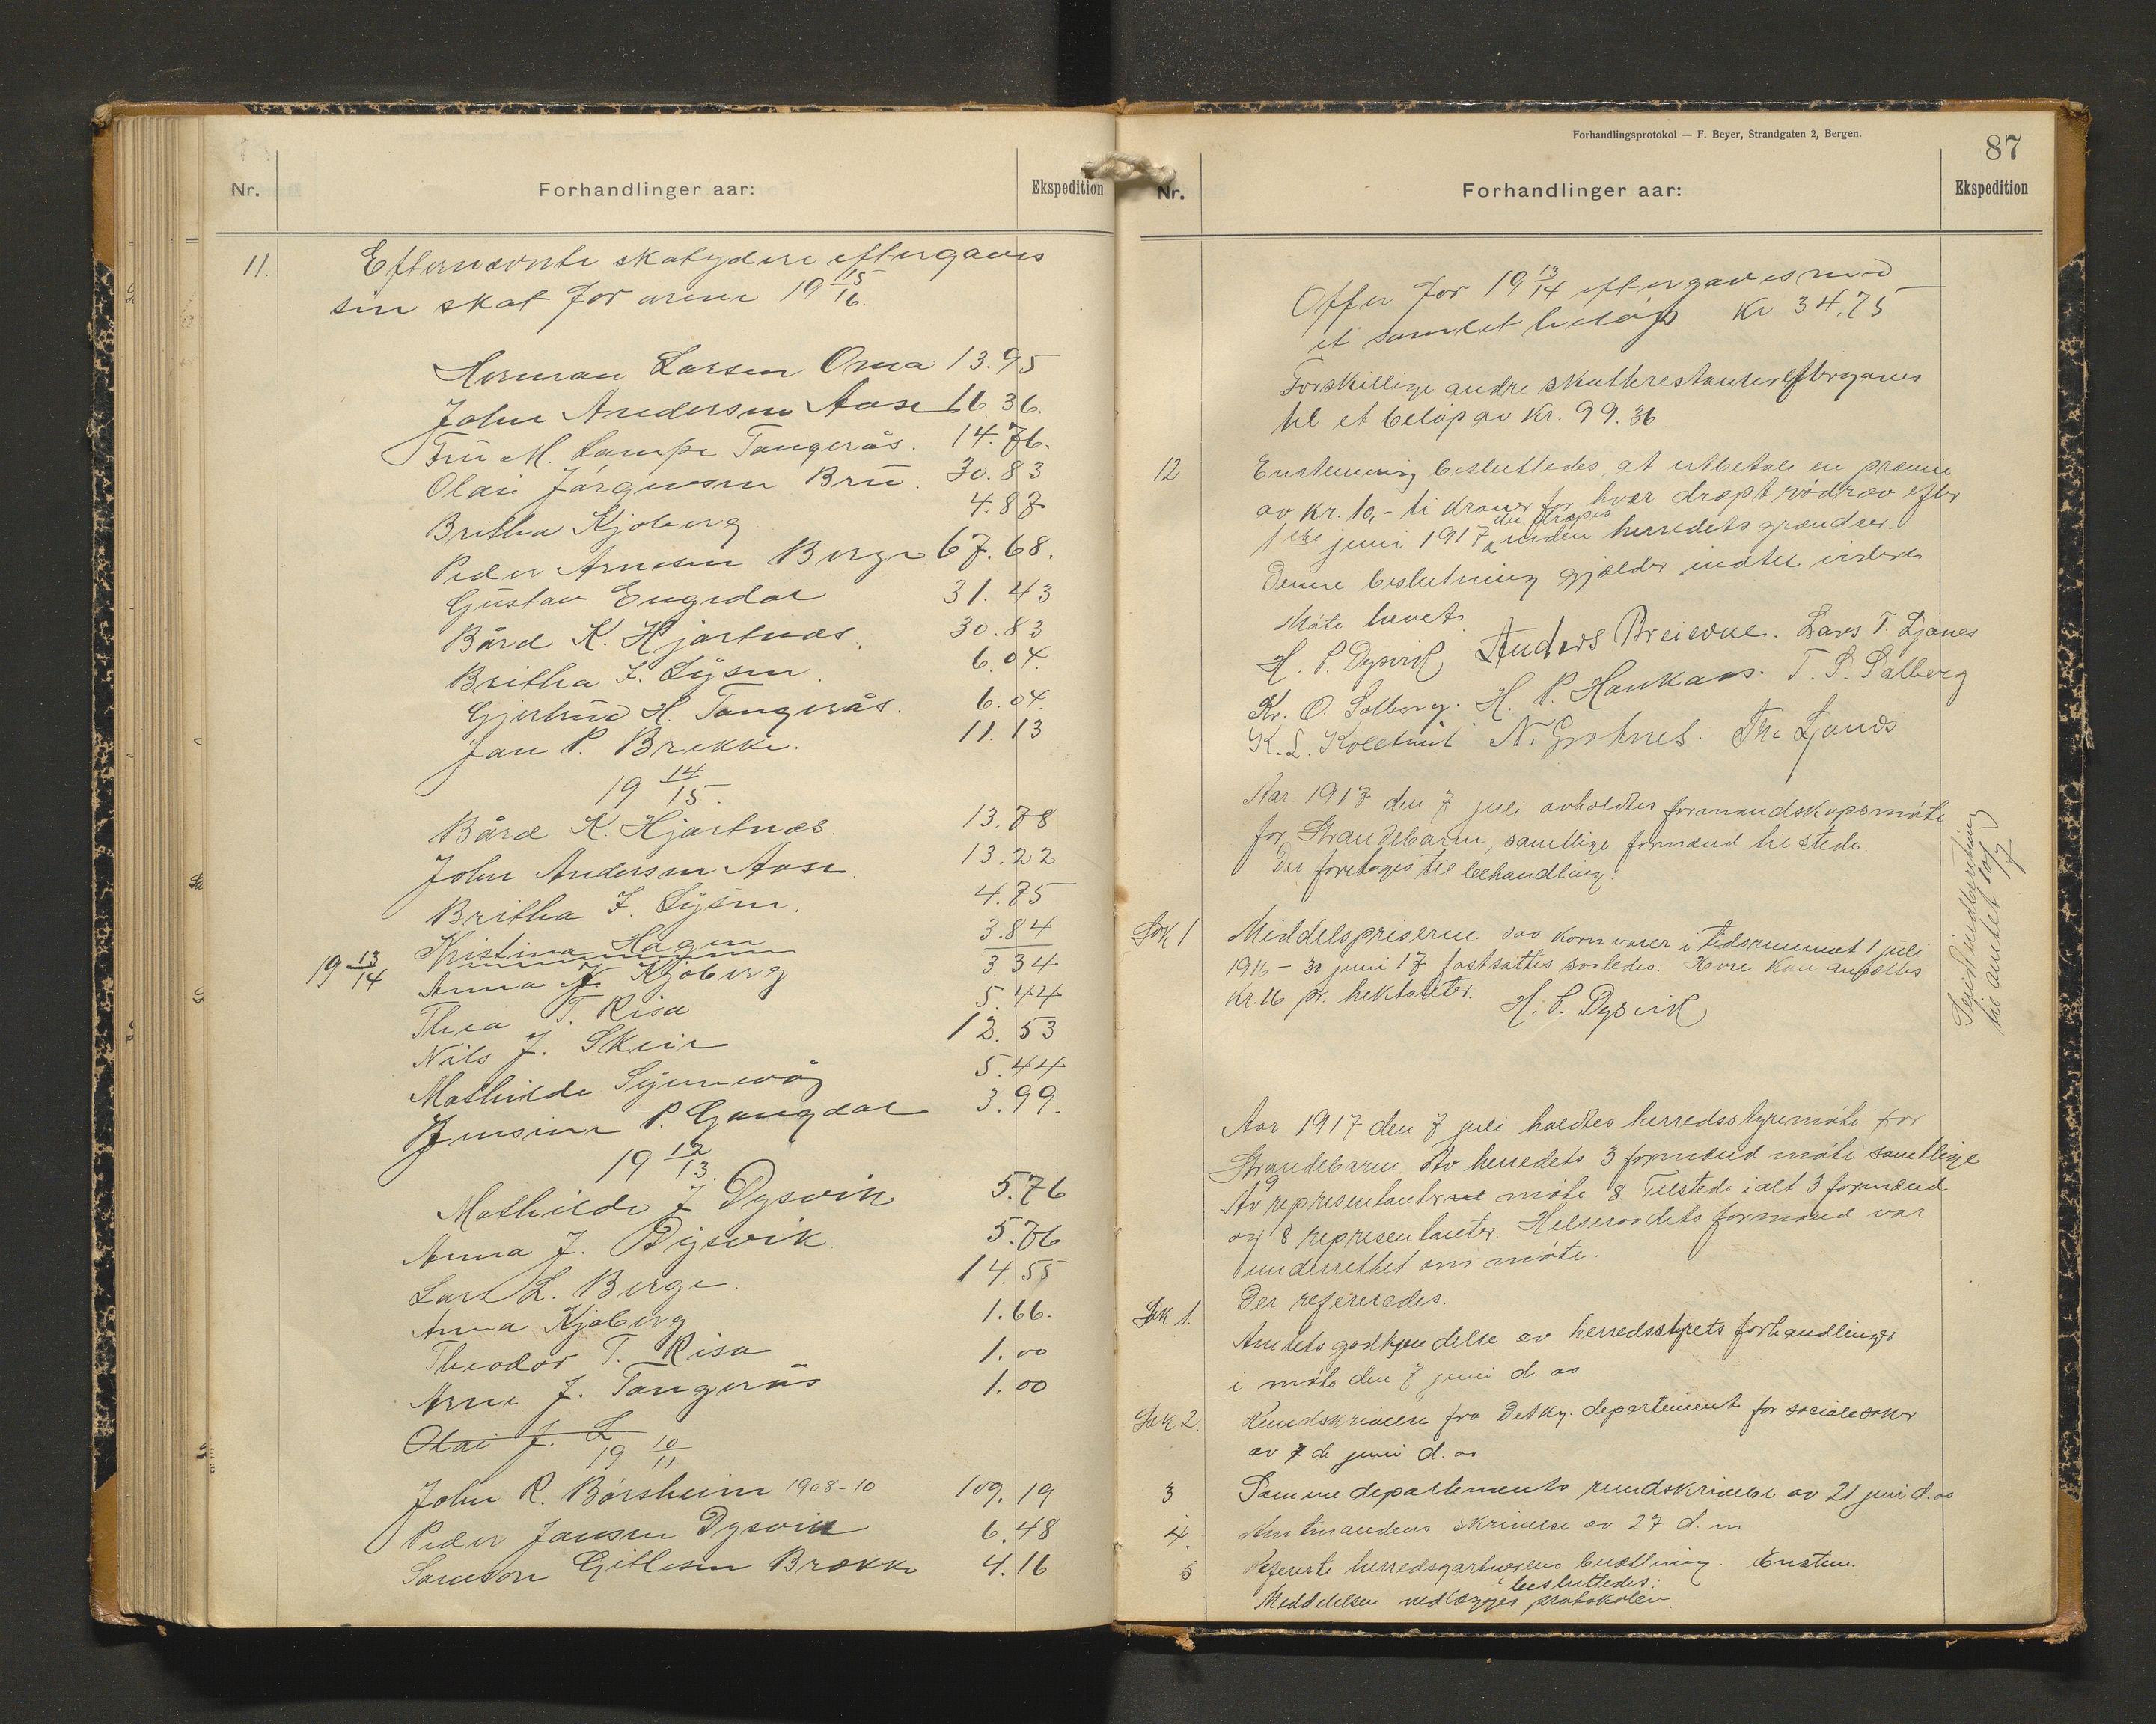 Nr.
Forhandlinger aar:
Ekspedition
11. Efternævnte skatydere eftergaves
sin skat for arene 19 15/16.
Herman Larsen Oma 13.95
John Andersen Aase 16.36.
Fru M. Lampe Tangerås. 14.76.
Olai Jørgensen Bru. 30.83
Britha Kjoberg 4.87
Peder Arnesen Berge 67.68.
Gustav Engedal 31.43
Bård K. Hjartnæs. 30.83
Britha J. Lysen. 6.04.
Gjertrud H. Tangerås. 6.04.
Jan P. Brekke. 11.13
19 14/15.
Bård K. Hjartnæs. 13.78
John Andersen Aase. 13.22
Britha J. Lysen. 4.75
Kristina Hagen 3.84
19 13/14 Anna J. Kjøberg 3.34
Thea T. Risa 5.44
Nils J. Skeie 12.53
Mathilde Synnevåg 5.44
Jensine P. Gangdal 3.99.
19 12/13.
Mathilde J Dysvik 5.76
Anna J. Dysvik 5.76
Lars L. Berge. 14.55
Anna Kjøberg 1.66.
Theodor T. Risa 1.00
Arne J. Tangerås 1.00
Olai J. L
19 10/11
John R. Børsheim 1908-10 109.19
Peder Jansen Dysvik 6.48
Samson Gitlesen Brække 4.16
Forhandlingsprotokol — F. Beyer, Strandgaten 2, Bergen.
87
Nr.
Forhandlinger aar:
Ekspedition
Offer for 19 13/14 eftergaves med
et samlet beløp Kr 34.75
Forskillige andre skatterestanter eftergaves
til et beløp av Kr. 99.36
12 Enstemmig besluttedes at utbetale en præmie
av kr. 10,- ti kroner for hver dræpt rødræv efter
1ste juni 1917 der dræpes inden herredets grændser.
Denne beslutning gjælder indtil videre
Møte hevet.
H. P. Dysvik Anders Breievne. Lars T. Ljones
Kr. O. Solberg. H. P. Haukaas. T. S. Salberg
K. L. Kolltveit N. Grøtnes. Th. Ljones
Aar 1917 den 7 juli avholdtes formandskapsmøte
for Strandebarm, samtlige formænd tilstede.
Der foretoges til behandling:
Sak 1 Middelspriserne paa kornvarer i tidsrummet 1 juli
1916 - 30 juni 17 fastsattes saaledes: Havre kan ansættes
Kr. 16 pr. hektoliter. H. P. Dysvik
til amtet 10/7 17
Aar 1917 den 7 juli holdtes herredsstyremøte for
Strandebarm. Av herredets 3 formænd møtte samtlige
Av representanterne møtte 8. Tilstede ialt 3 formænd
og 8 representanter. Helseraadets formand var
underrettet om møte.
Der refereredes.
Sak 1. Amtets godkjendelse av herredsstyrets forhandlinger
i møte den 7 juni d. aa
Sak 2. Rundskrivelse fra Det kg. departement for sociale saker
av 7 de juni d. aa
3 Samme departements rundskrivelse av 21 juni d. aa
4. Amtmandens skrivelse av 27 d. m
5 Refererte herredsgartnerens beretning. Enstem.
besluttedes:
Meddelelsen vedlægges protokolen.